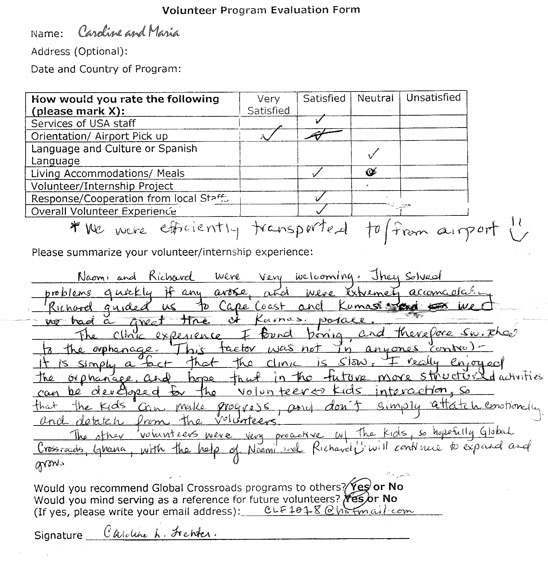 Volunteer Program Evaluation Form
Name: Caroline and Maria
Address (Optional):
Date and Country of Program:
How would you rate the following (please mark X): Very Satisfied Satisfied Neutral Unsatisfied
Services of USA staff ✓
Orientation/ Airport Pick up ✓
Language and Culture or Spanish
Language ✓
Living Accommodations/ Meals ✓
Volunteer/Internship Project
Response/Cooperation from local Staff ✓
Overall Volunteer Experience ✓
* We were efficiently transported to/from airport
Please summarize your volunteer/internship experience:
Naomi and Richard were very welcoming. They solved
problems quickly if any arose, and were extremely
Richard guided us to Cape Coast and Kumasi we
had a great time at
The clinic experience I found boring, and therefore switched
to the orphanage. This factor was not in anyones control -
it is simply a fact that the clinic is slow. I really enjoyed
the orphanage and hope that in the future more structured activities
can be developed for the volunteer + kids interaction, so
that the kids can make progress, and don't simply attach emotionally
and detach from the volunteers.
The other volunteers were very proactive w/ the kids, so hopefully Global
Crossroads, Ghana, with the help of Naomi and Richard will continue to expand and
grow.
Would you recommend Global Crossroads programs to others? Yes or No
Would you mind serving as a reference for future volunteers? Yes or No
(If yes, please write your email address): @hotmail.com
Signature Caroline L.